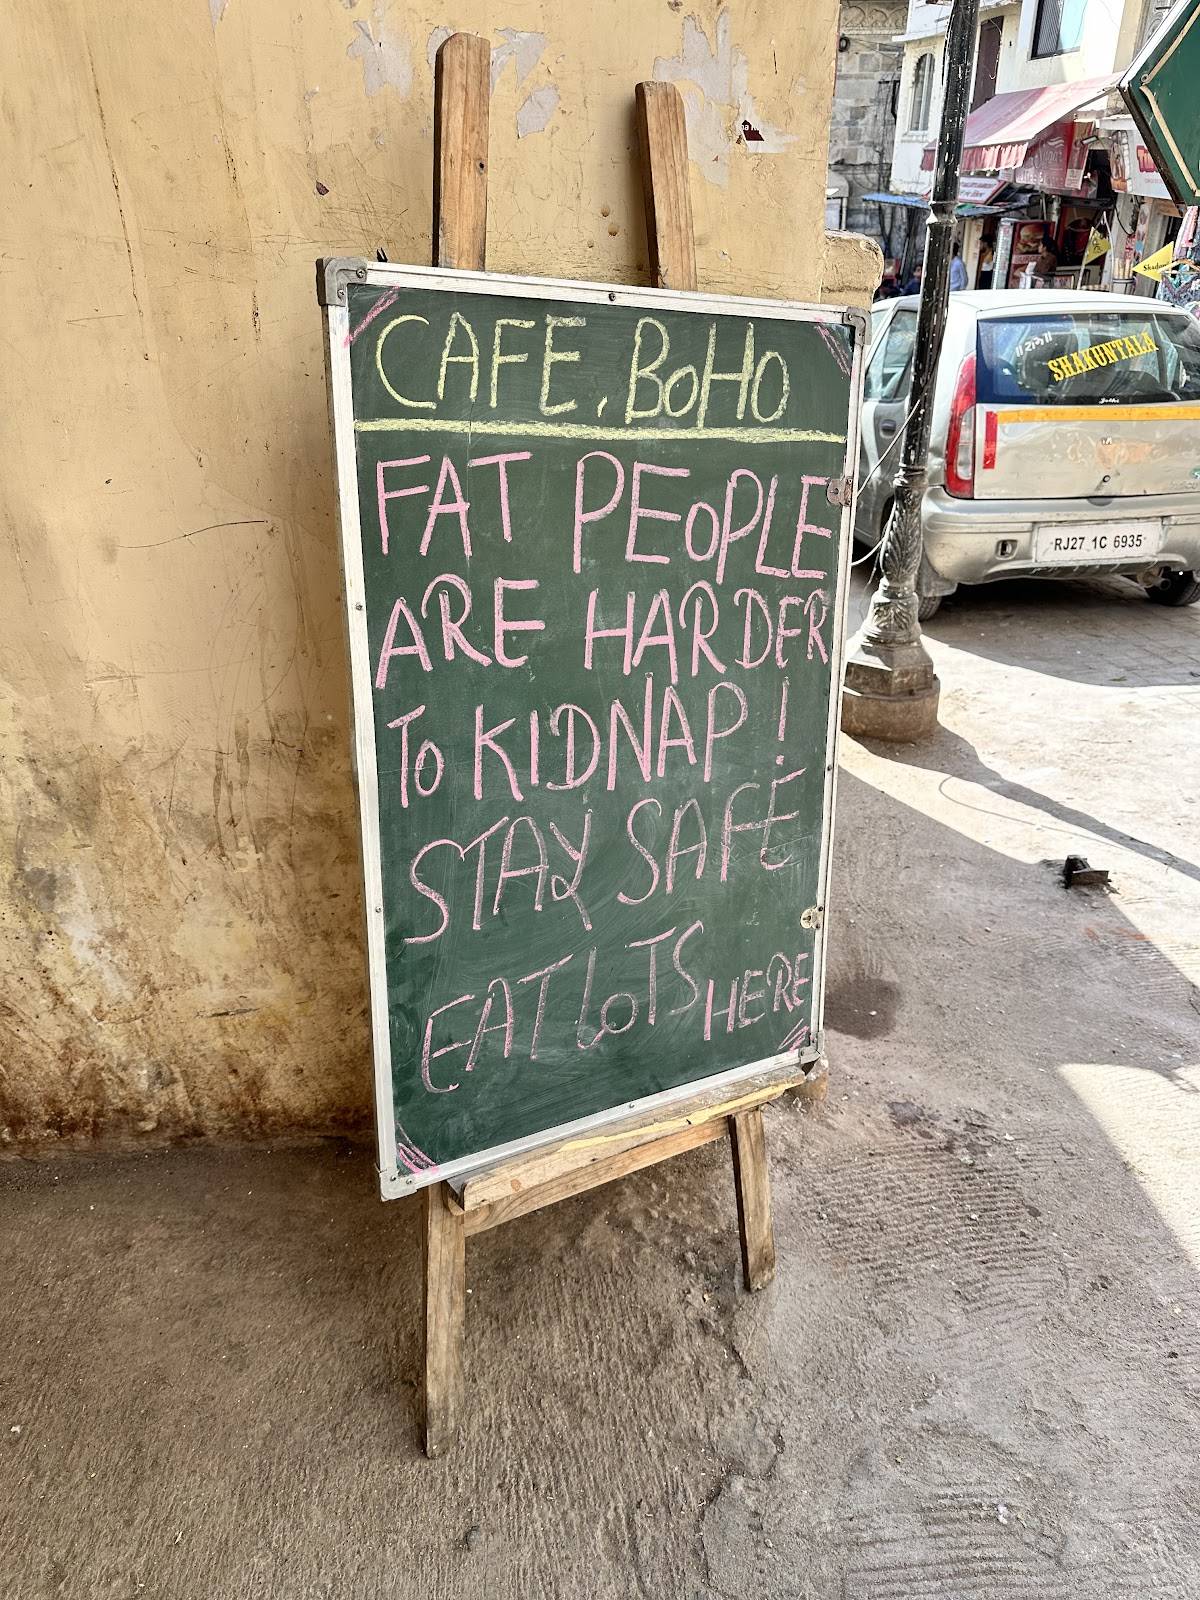 CAFE. BOHO
FAT PEOPLE
ARE HARDER
TO KIDNAP!
STAY SAFE
EAT LOTS HERE
SHAKUNTALA
RJ27 1C 6935